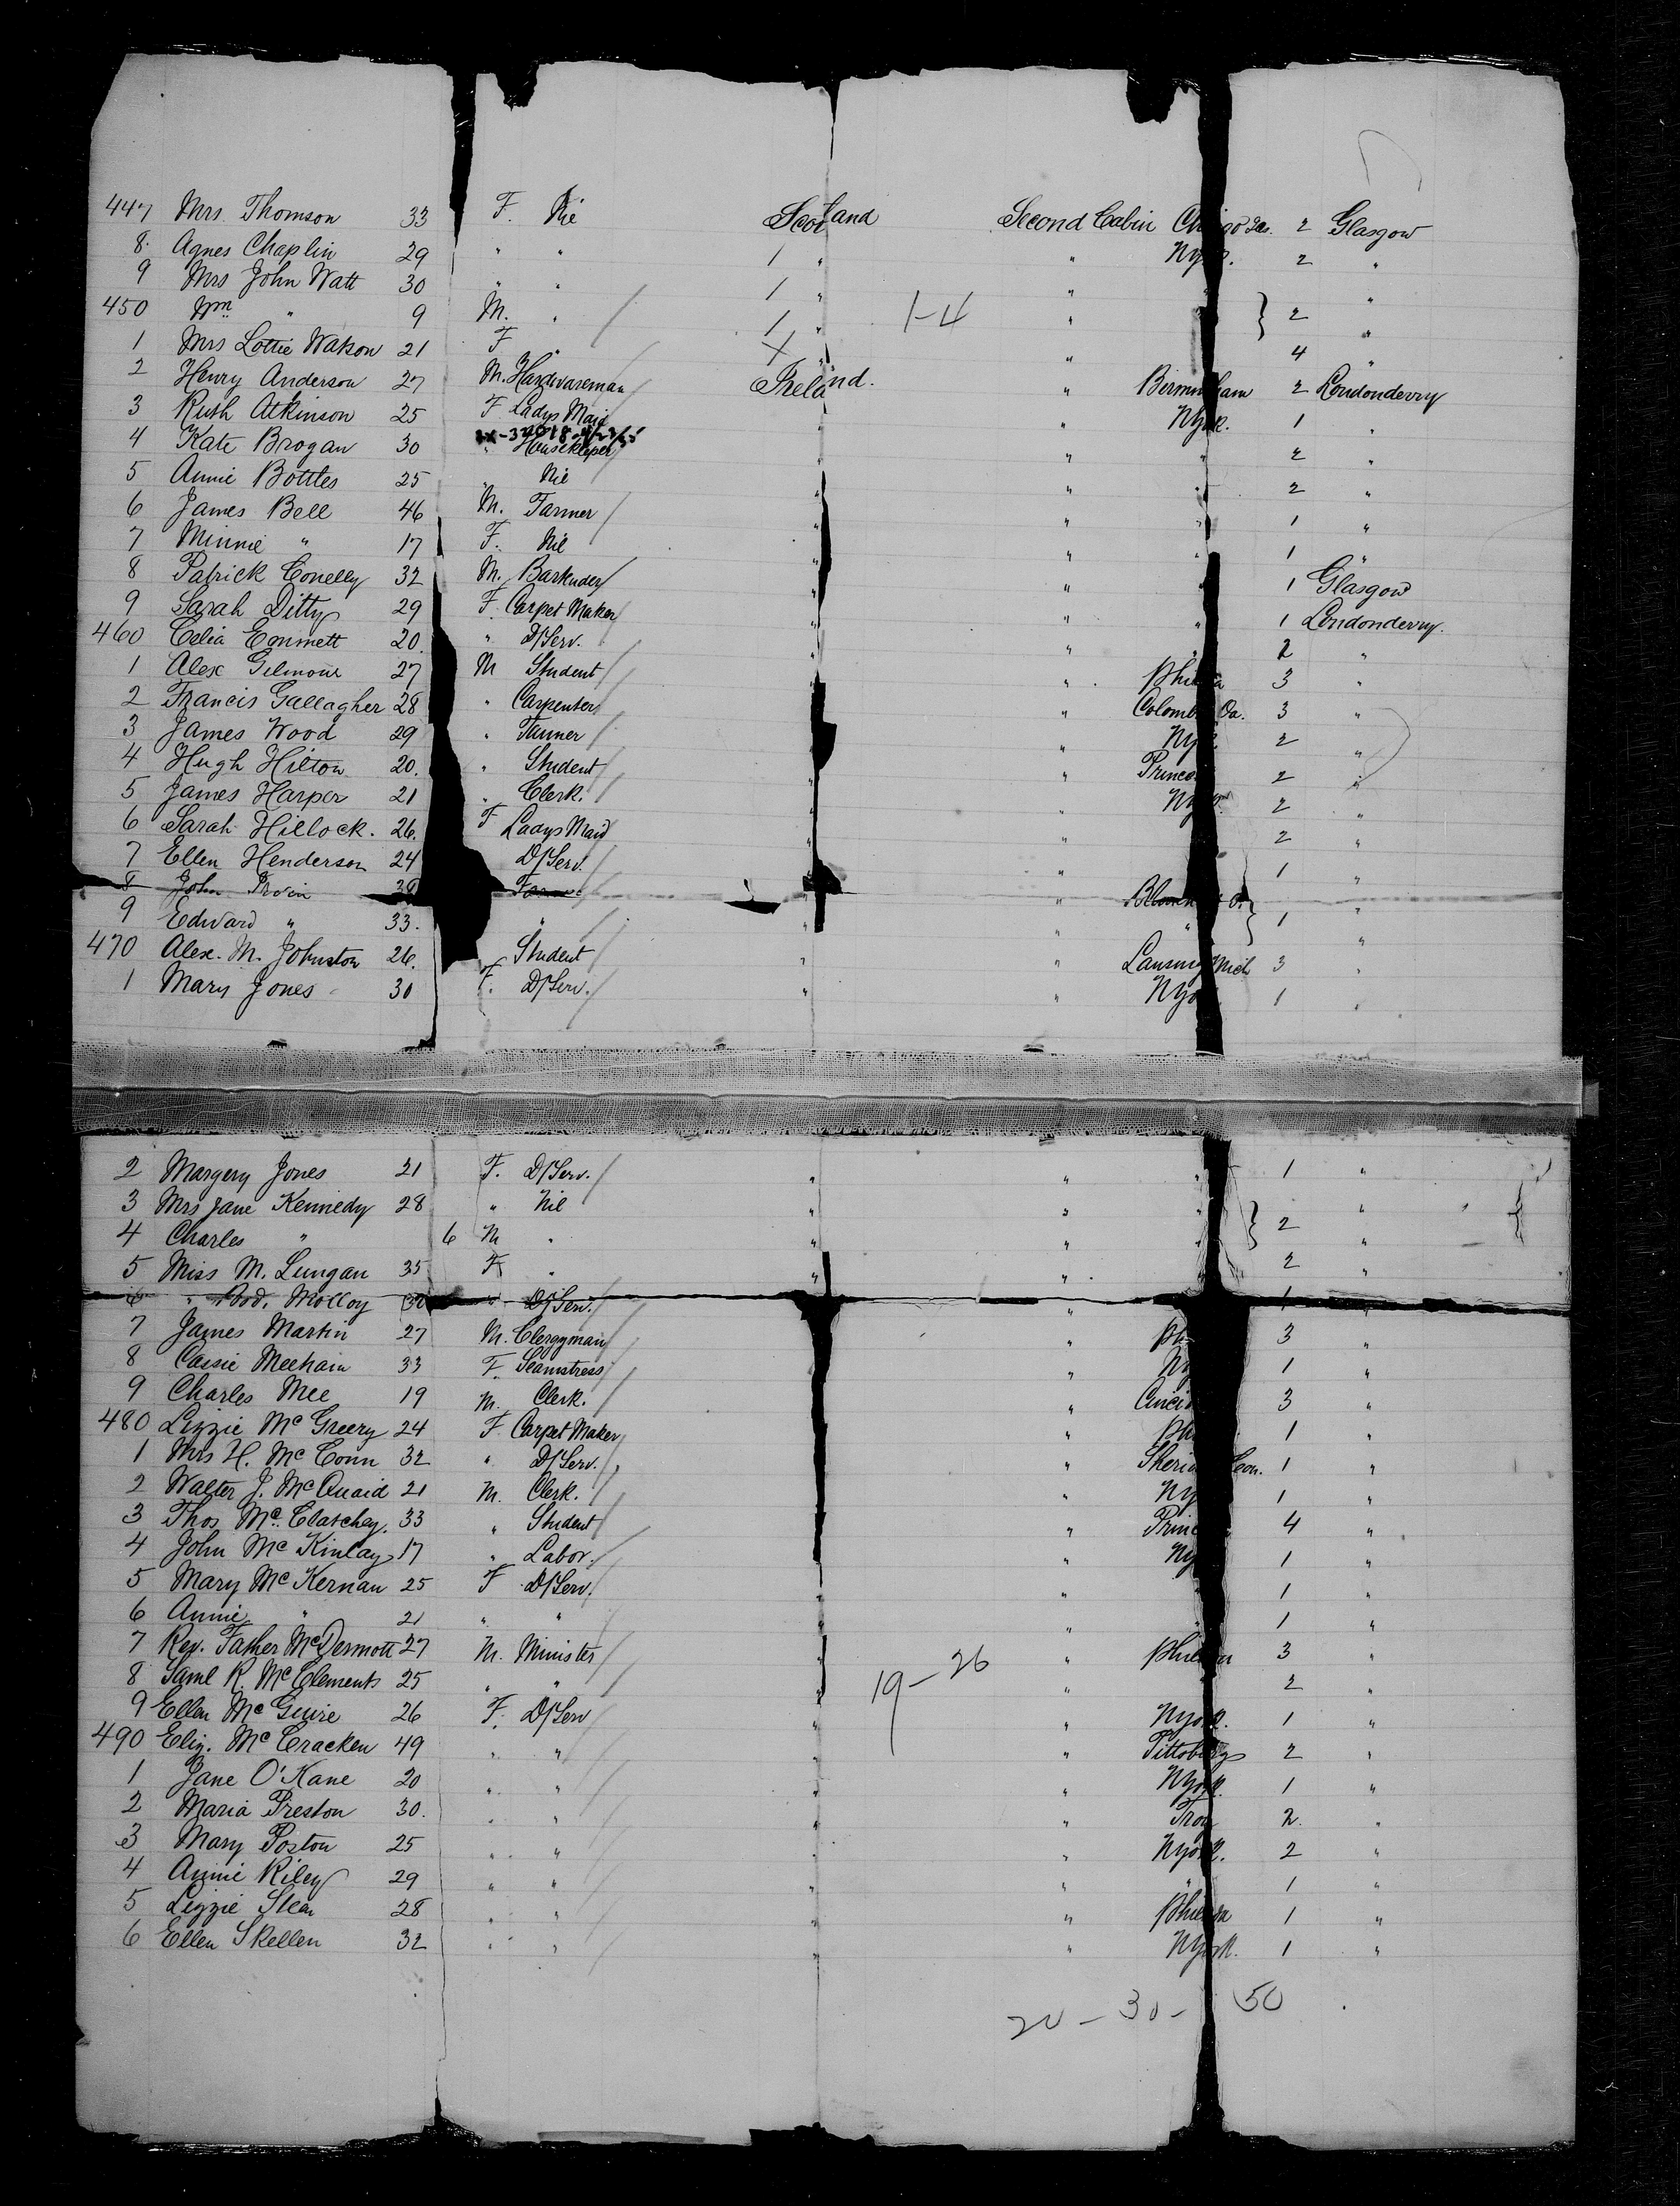 447 Mrs. Thomson 33 F. Nil Scotland Second Cabin 2 Glasgow
8 Agnes Chaplin 29 " " 1 " " NYk. 2 "
9 Mrs John Watt 30 " " 1 " " " "
450 Wm " 9 M. " 1 " 1-4 " " } 2 "
1 Mrs Lottie Watson 21 F " " " 4 "
2 Henry Anderson 27 M. Hardwareman Ireland. " Birmingham 2 Londonderry
3 Ruth Atkinson 25 F Ladys Maid " " NYk. 1 "
4 Kate Brogan 30 " Housekeeper " " " 2 "
5 Annie Bottles 25 " Nil " " " 2 "
6 James Bell 46 M. Farmer " " " 1 "
7 Minnie " 17 F. Nil " " " 1 "
8 Patrick Conelly 32 M. " " " 1 Glasgow
9 Sarah Ditty 29 F. Carpet Maker " " " 1 Londonderry.
460 Celia Emmett 20. " D/Serv. " " " 2 "
1 Alex Gilmour 27 M Student " " Phila 3 "
2 Francis Gallagher 28 " Carpenter " " 3 "
3 James Wood 29 " " " NY 2 "
4 Hugh Hilton 20. " Student " " Prince 2 "
5 James Harper 21 " Clerk. " " NYk. 2 "
6 Sarah Hillock. 26. F Ladys Maid " " 2 "
7 Ellen Henderson 24 D/Serv. " " 1 "
8 John Irvin 38 " "
9 Edward " 33. " " " " } 1 "
470 Alex. M. Johnston 26. Student " " Lansing Mich 3 "
1 Mary Jones 30 F. D/Serv. " " NYo 1 "
2 Margery Jones 21 F. D/Serv. " " " 1 "
3 Mrs Jane Kennedy 28 " Nil " " " "
4 Charles " 6 M " " " " } 2 "
5 Miss M. Lungan 35 F " " " 2 "
6 " Molloy " D/Serv. " 1
7 James Martin 27 M. Clergyman " Ph 3 "
8 Cassie Meehain 33 F. Seamstress " NY 1 "
9 Charles Mee 19 M. Clerk. " Cinci 3 "
480 Lizzie McGreery 24 F. Carpet Maker " Ph 1 "
1 Mrs H. McConn 32 " D/Serv. " 1 "
2 Walter J. McQuaid 21 M. Clerk. " NY 1 "
3 Thos McClatchey. 33 " Student " Princ 4 "
4 John McKinlay 17 " Labor. " NY 1 "
5 Mary McKernan 25 F D/Serv. " " 1 "
6 Annie " 21 " " " " " 1 "
7 Rev. Father McDermott 27 M. Minister " " Phila 3 "
8 Saml R. McClements 25 " " " 19-26 " " 2 "
9 Ellen McGuire 26 F. D/Serv " " NYork. 1 "
490 Eliz. McCracken 49 " " " " Pittsburg 2 "
1 Jane O'Kane 20 " " " " NYork. 1 "
2 Maria Preston 30. " " " " Troy 2 "
3 Mary Poston 25 " " " " NYork. 2 "
4 Annie Riley 29 " " " " " 1 "
5 Lizzie Slean 28 " " " " Phila 1 "
6 Ellen Skellen 32 " " " " NYork. 1 "
20 - 30 - 50